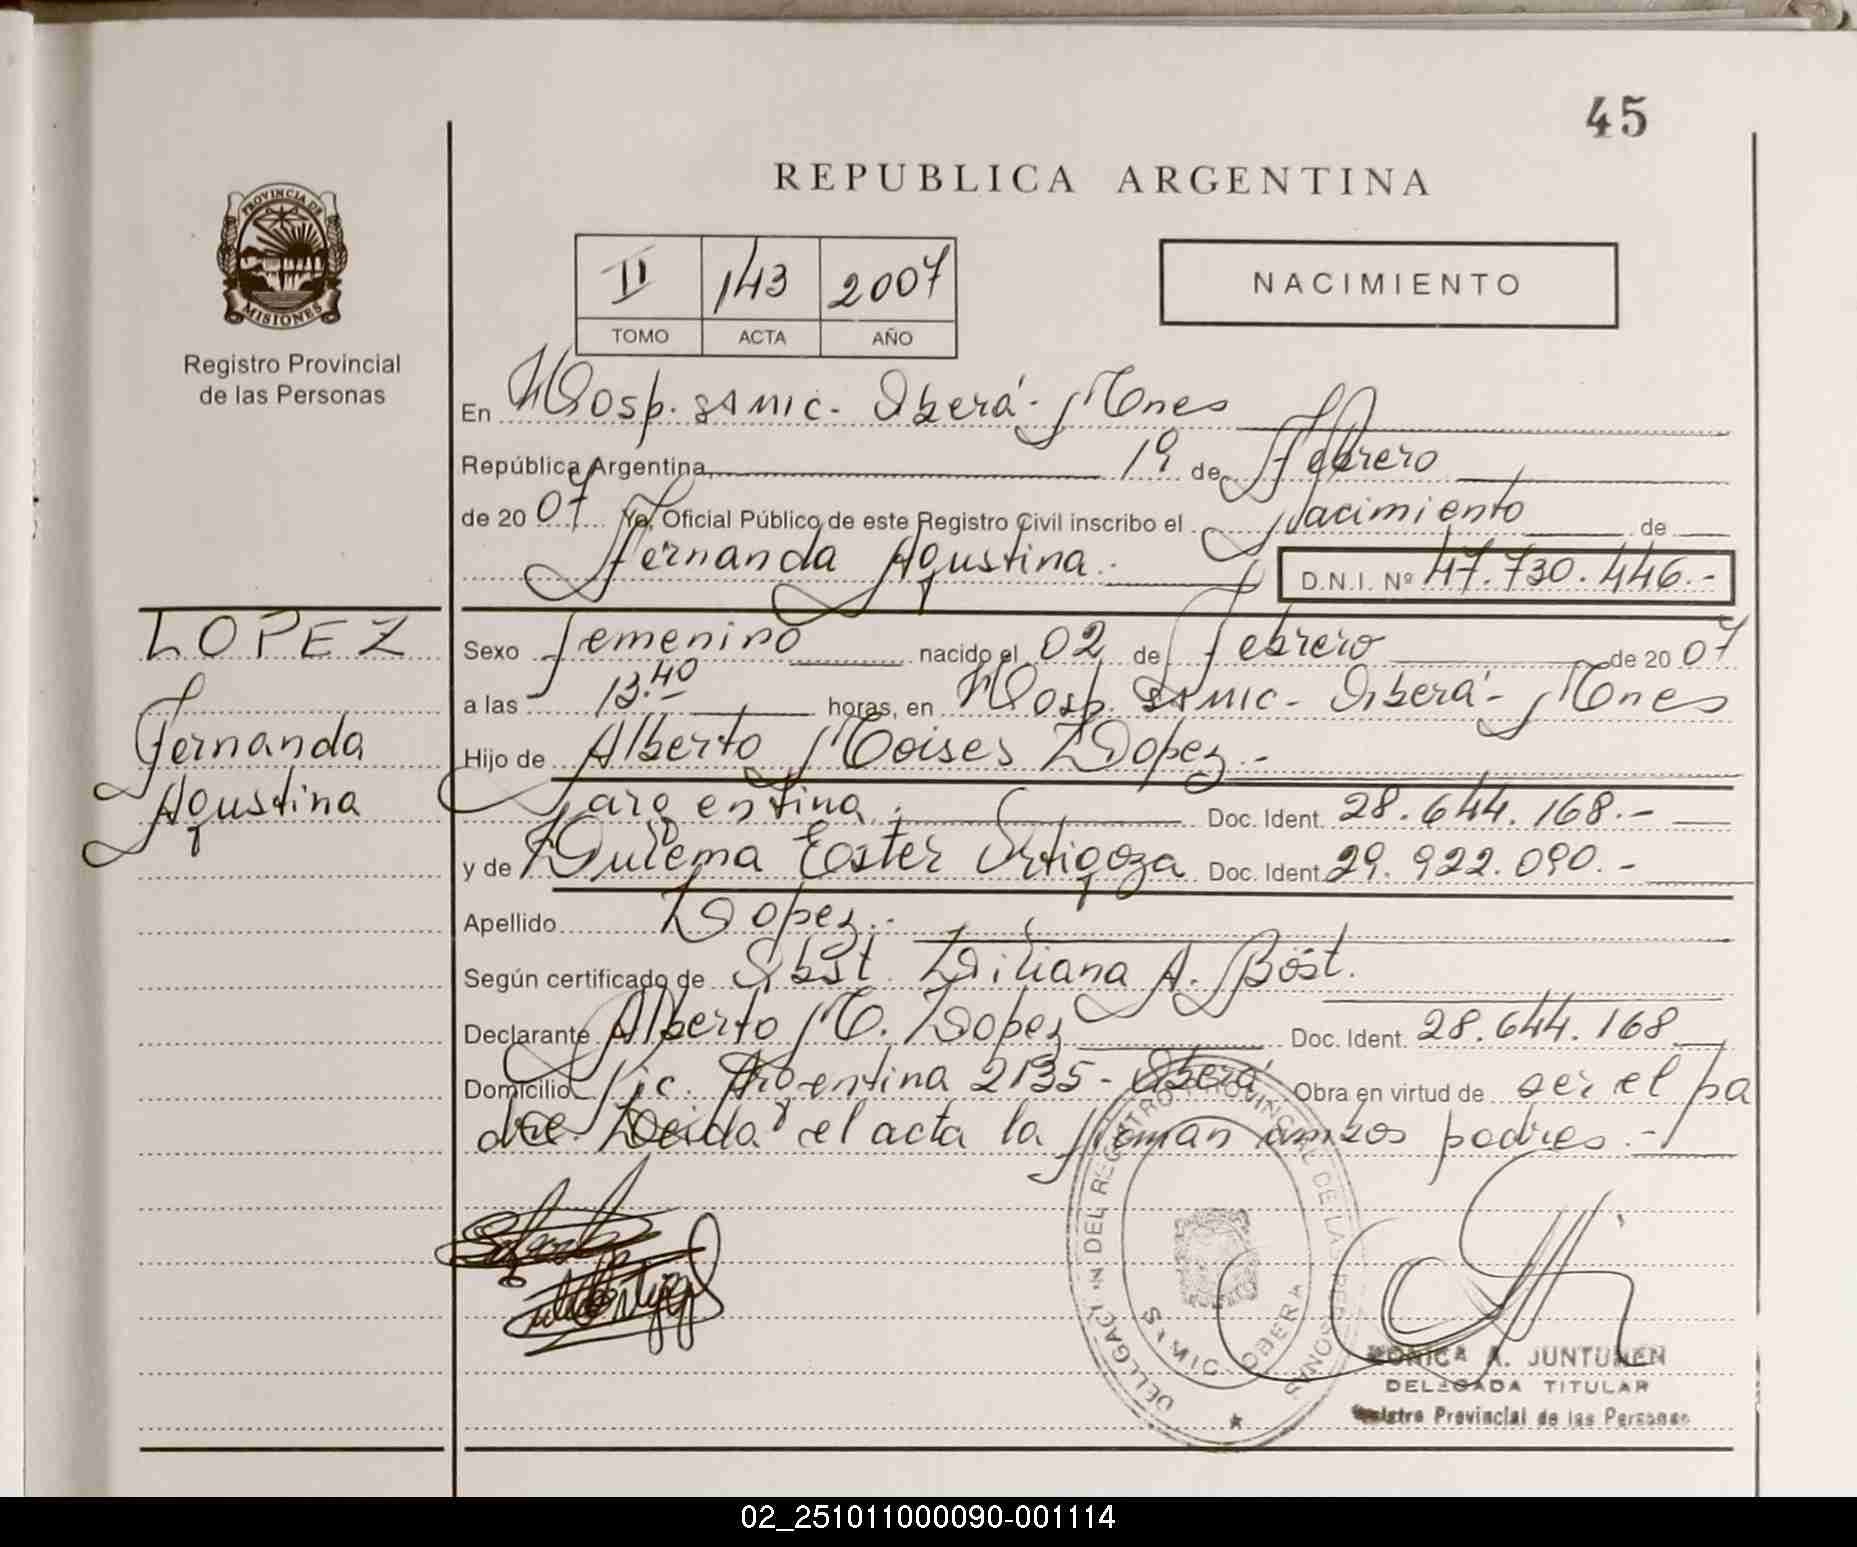 45
REPUBLICA ARGENTINA
PROVINCIA DE
MISIONES
Registro Provincial
de las Personas
II 143 2007
TOMO ACTA AÑO
NACIMIENTO
En Hosp. SAMIC - Oberá - Mnes
República Argentina, 19 de Febrero
de 2007 Yo, Oficial Público de este Registro Civil inscribo el Nacimiento de
Fernanda Agustina.- D.N.I. Nº 47.730.446.-
LOPEZ
Fernanda
Agustina
Sexo femenino nacido el 02 de febrero de 2007
a las 13.40 horas, en Hosp. SAMIC - Oberá - Mnes
Hijo de Alberto Moises Lopez.-
argentina. Doc. Ident. 28.644.168.-
y de Zulema Ester Ortigoza Doc. Ident. 29.922.090.-
Apellido Lopez.-
Según certificado de Obst. Liliana A. Böst.
Declarante Alberto M. Lopez Doc. Ident. 28.644.168
Domicilio Argentina 2135 - Oberá Obra en virtud de ser el pa
dre. Leida el acta la firman ambos padres.-
DEL REGISTRO PROVINCIAL DE LAS PERSONAS
OBERA
MONICA A. JUNTUNEN
DELEGADA TITULAR
Registro Provincial de las Personas
02_251011000090-001114